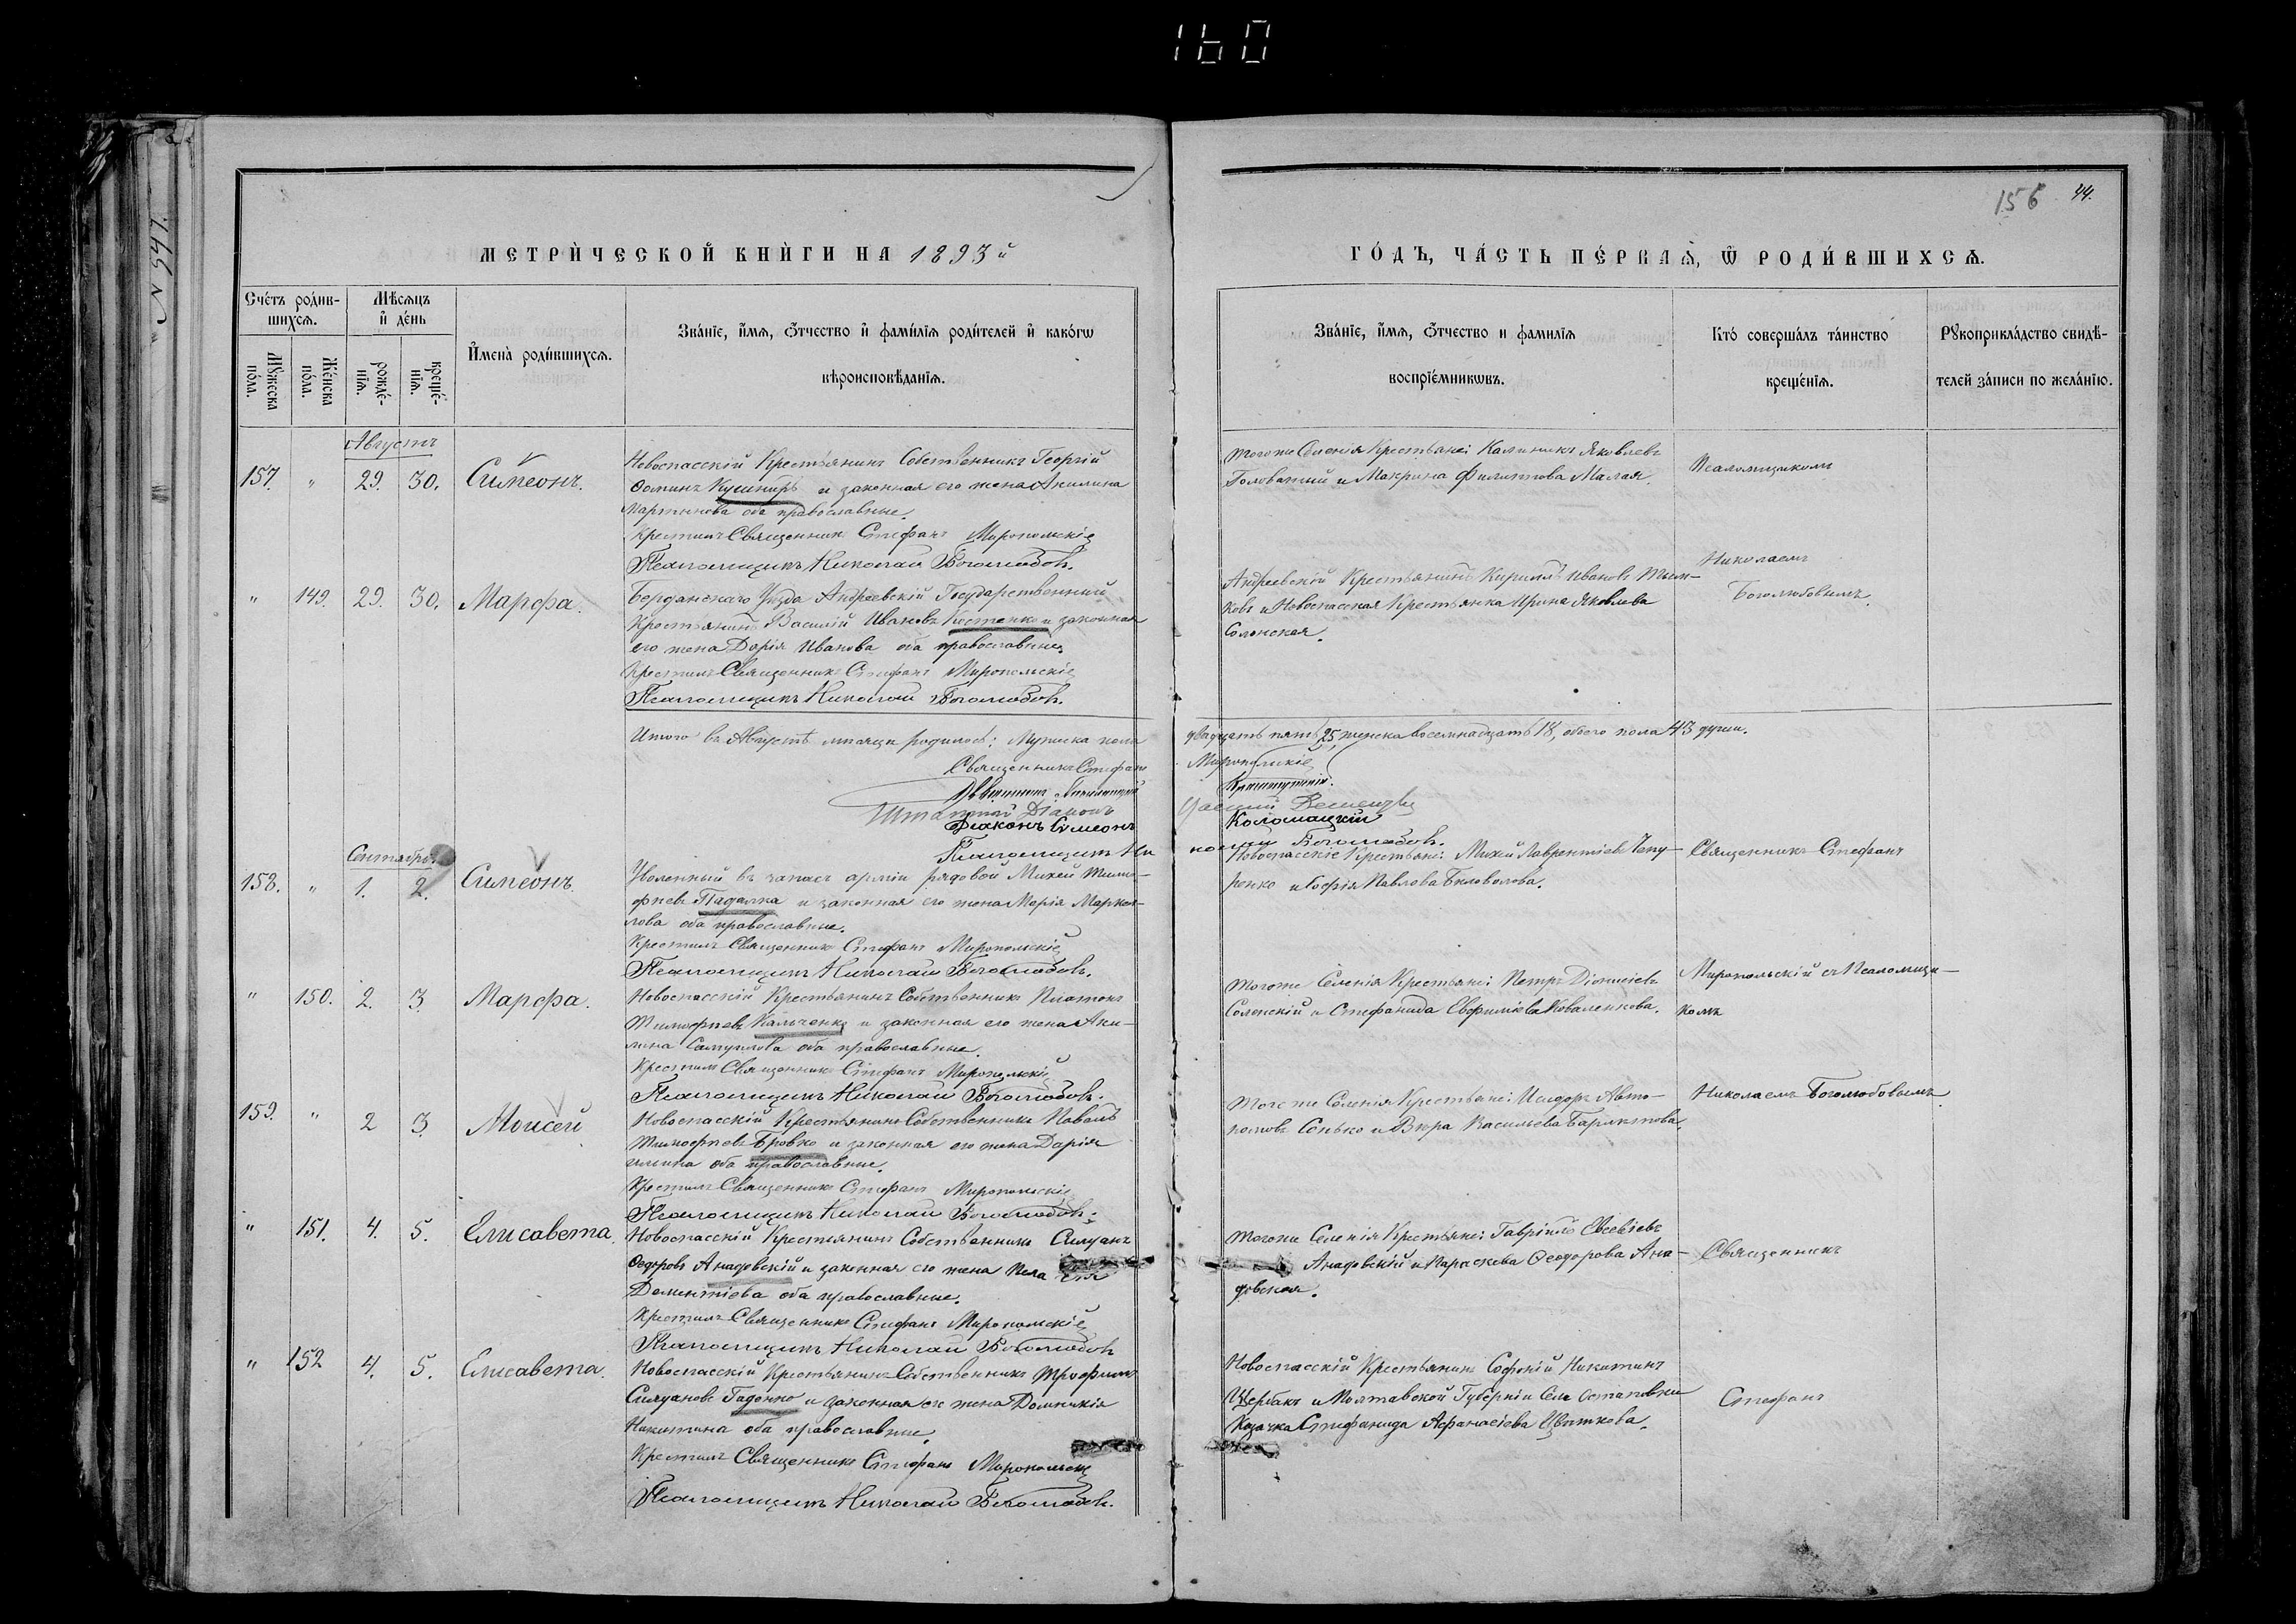 160
N 547.
156 44.
МЕТРИ́ЧЕСКОЙ КНИ́ГИ НА 1893й
ГО́ДЪ, ЧА́СТЬ ПЕ́РВАѦ, Ѿ РОДИ́ВШИХСѦ.
Сче́тъ роди́в-
шихсѧ.
Мѣ́сѧцъ
и҆ де́нь
Мꙋ́жеска по́ла.
Же́нска по́ла.
рожде́-нїѧ.
креще́-нїѧ.
И҆мена̀ роди́вшихсѧ.
Зва́нїе, и҆́мѧ, ѻ҆́тчество и҆ фами́лїѧ роди́телей и҆ како́гѡ
вѣроисповѣ́данїѧ.
Зва́нїе, и҆́мѧ, ѻ҆́тчество и фамилїѧ
воспрїе́мникѡвъ.
Кто́ соверша́лъ та́инство
креще́нїѧ.
Рꙋкоприкла́дство свидѣ́-
телей за́писи по жела́нїю.
Августъ
157. " 29. 30. Симеонъ.
Новоспасскій Крестьянинъ Собственникъ Георгій
Ѳоминъ Кушниръ и законная его жена Акилина
Мартынова оба православные.
Крестилъ Священникъ Стефанъ Миропольскій
Псаломщикъ Николай Боголюбовъ.
тогоже Селенія Крестьяне: Калиникъ Яковлевъ
Головатый и Макрина Филиппова Малая.
Псаломщикомъ
" 149. 29. 30. Марфа.
Бердянскаго Уѣзда Андреевскій Государственный
Крестьянинъ Василій Ивановъ Костенко и законная
его жена Дарія Иванова оба православные
Крестилъ Священникъ Стефанъ Миропольскій
Псаломщикъ Николай Боголюбовъ.
Андреевскій Крестьянинъ Кириллъ Ивановъ
и Новоспасская Крестьянка Ирина Яковлева
Солонская.
Николаемъ
Боголюбовымъ.
Итого въ Августѣ мѣсяцѣ родилось: Мужеска пола двадцать пять 25, женска восемнадцать 18, обоего пола 43 души.
Священникъ Стефанъ Миропольскій
Штатный Діаконъ
Діаконъ Симеонъ Коломацкій
Псаломщикъ Николай Боголюбовъ.
Сентябрь
158. " 1. 2. Симеонъ.
Уволенный въ запасъ арміи рядовой Михей Тимо-
фѣевъ Падалка и законная его жена Марія Маркел-
лова оба православные.
Крестилъ Священникъ Стефанъ Миропольскій
Псаломщикъ Николай Боголюбовъ.
Новоспасскіе Крестьяне: Михей Лаврентіевъ Чепу-
ренко и Софія Павлова Бѣловолова.
Священникъ Стефанъ
" 150. 2. 3. Марфа.
Новоспасскій Крестьянинъ Собственникъ Платонъ
Тимофѣевъ Кальченко и законная его жена Аки-
лина Самуилова оба православные.
Крестилъ Священникъ Стефанъ Миропольскій
Псаломщикъ Николай Боголюбовъ.
тогоже Селенія Крестьяне: Петръ Діонисіевъ
Солонскій и Стефанида Евфиміева Коваленкова.
Миропольскій съ Псаломщи-
комъ
159. " 2 3. Моисей
Новоспасскій Крестьянинъ Собственникъ Павелъ
Тимофѣевъ Бровко и законная его жена Дарія
Ильина оба православные.
Крестилъ Священникъ Стефанъ Миропольскій
Псаломщикъ Николай Боголюбовъ.
Тогоже Селенія Крестьяне: Исидоръ Авто-
номовъ Сонько и Вѣра Васильева
Николаемъ Боголюбовымъ
" 151. 4. 5. Елисавета.
Новоспасскій Крестьянинъ Собственникъ Силуанъ
Ѳедоровъ Анадовскій и законная его жена Пелагія
Дементіева оба православные.
Крестилъ Священникъ Стефанъ Миропольскій
Псаломщикъ Николай Боголюбовъ
тогоже Селенія Крестьяне: Гавріилъ Евсевіевъ
Анадовскій и Параскева Ѳеодорова Ана-
довская.
Священникъ
" 152 4. 5. Елисавета.
Новоспасскій Крестьянинъ Собственникъ Трофимъ
Силуановъ Гаденко и законная его жена Домникія
Никитина оба православные.
Крестилъ Священникъ Стефанъ Миропольскій
Псаломщикъ Николай Боголюбовъ.
Новоспасскій Крестьянинъ Софоній Никитинъ
Щербакъ и Полтавской Губерніи Села Остаповки
Козачка Стефанида Афанасіева Цвѣткова.
Стефанъ